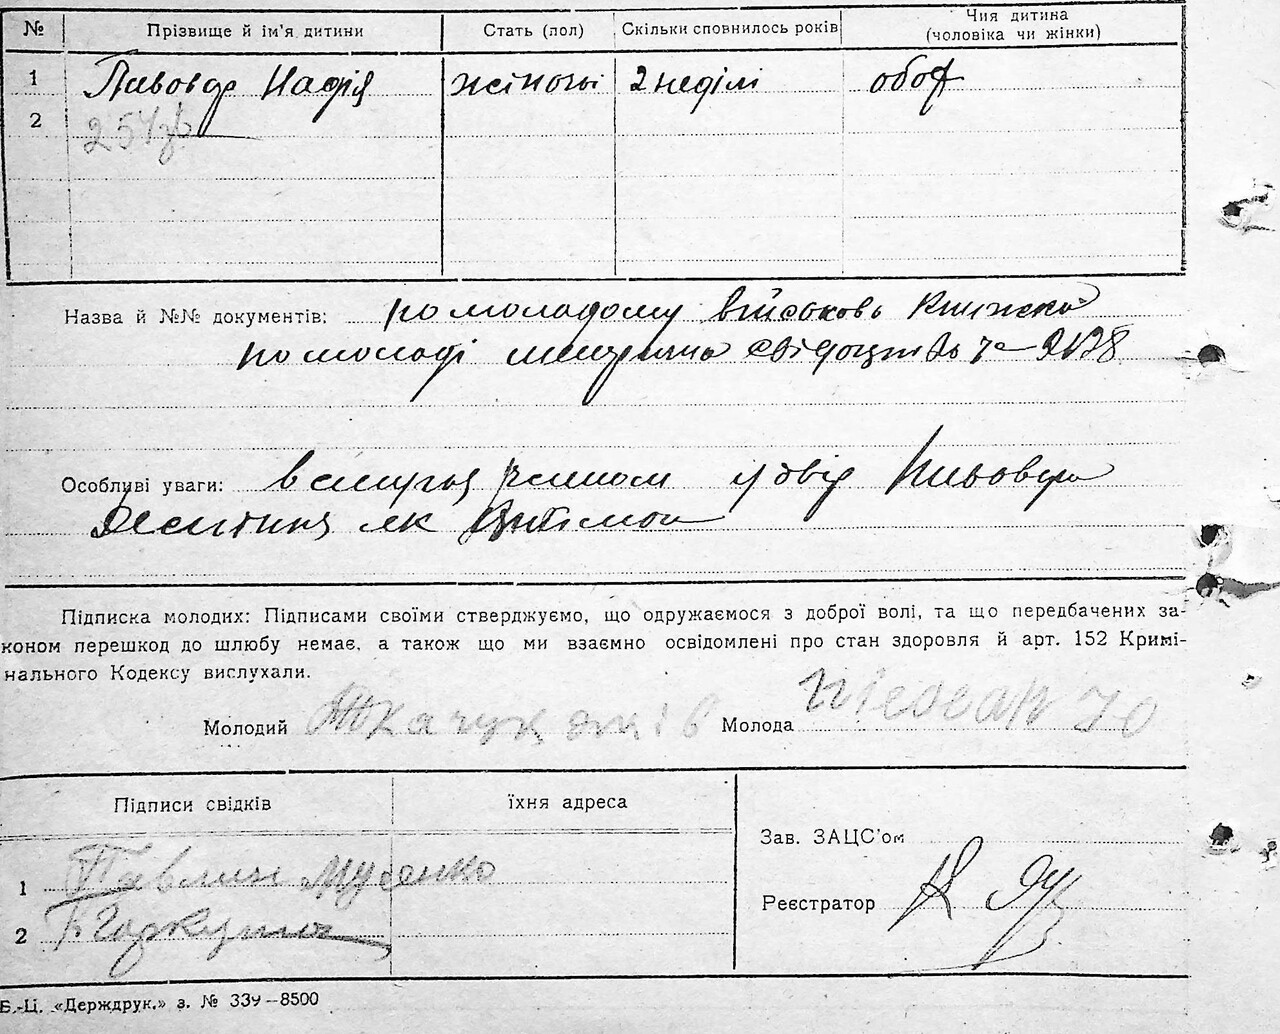 № Прізвище й ім'я дитини Стать (пол) Скільки сповнилось років Чия дитина (чоловіка чи жінки)
1 Пивовар Надія жіночы 2 неділі обох
2
Назва й №№ документів: по молодому військова книжка
по молоді метрична свідоцтво
Особливі уваги:
як
Підписка молодих: Підписами своїми стверджуємо, що одружаємося з доброї волі, та що передбачених за-
коном перешкод до шлюбу немає, а також що ми взаємно освідомлені про стан здоровля й арт. 152 Кримі-
нального Кодексу вислухали.
Молодий Ткачук Молода
Підписи свідків їхня адреса
Зав. ЗАЦС'ом
1 Павлин Мусенко
Реєстратор
2 Гаркуша
Б.-Ц. «Держдрук.» з. № 339—8500